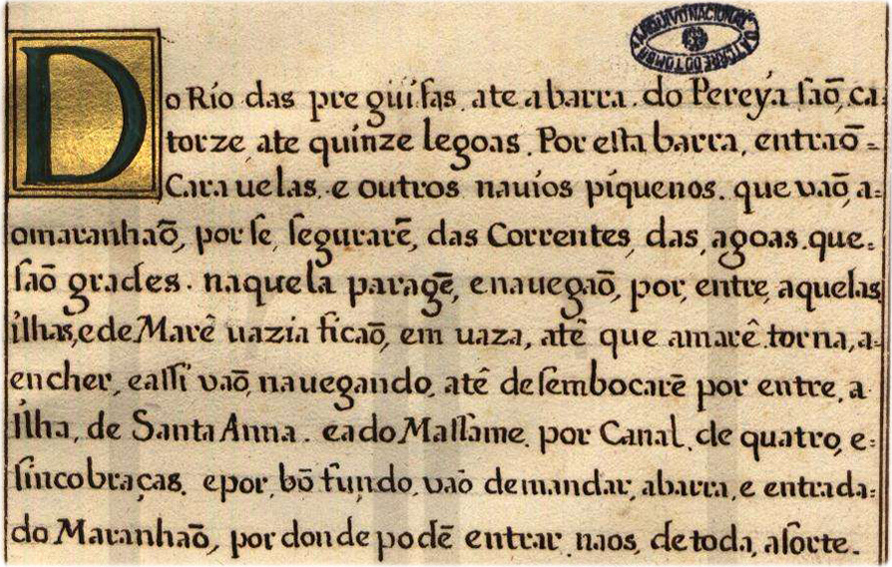 ARQUIVO NACIONAL DA TORRE DO TOMBO
Do Rio das preguiſas, ate abarra. do Pereya ſaõ, ca:
torze, ate quinze legoas. Por eſta barra, entraõ =
Cara uelas. e outros nauios piquenos. que vaõ, a=
omaranhaõ, por ſe, ſegurarẽ, das Correntes, das, agoas. que:
ſaõ grades. naquela paragẽ, enauegaõ, por, entre, aquelas
ilhas, e de Marê uazia ficaõ, em uaza, atê que amarê. torna, a=
encher, eaſſi vaõ, nauegando, atê deſembocarẽ por entre, a
Ilha, de Santa Anna. eado Maſſame, por Canal, de quatro, e=
ſincobraças. epor, bõ fundo, vaõ demandar, abarra, e entrada=
do Maranhaõ, por donde podẽ entrar, naos, de toda, aſorte.